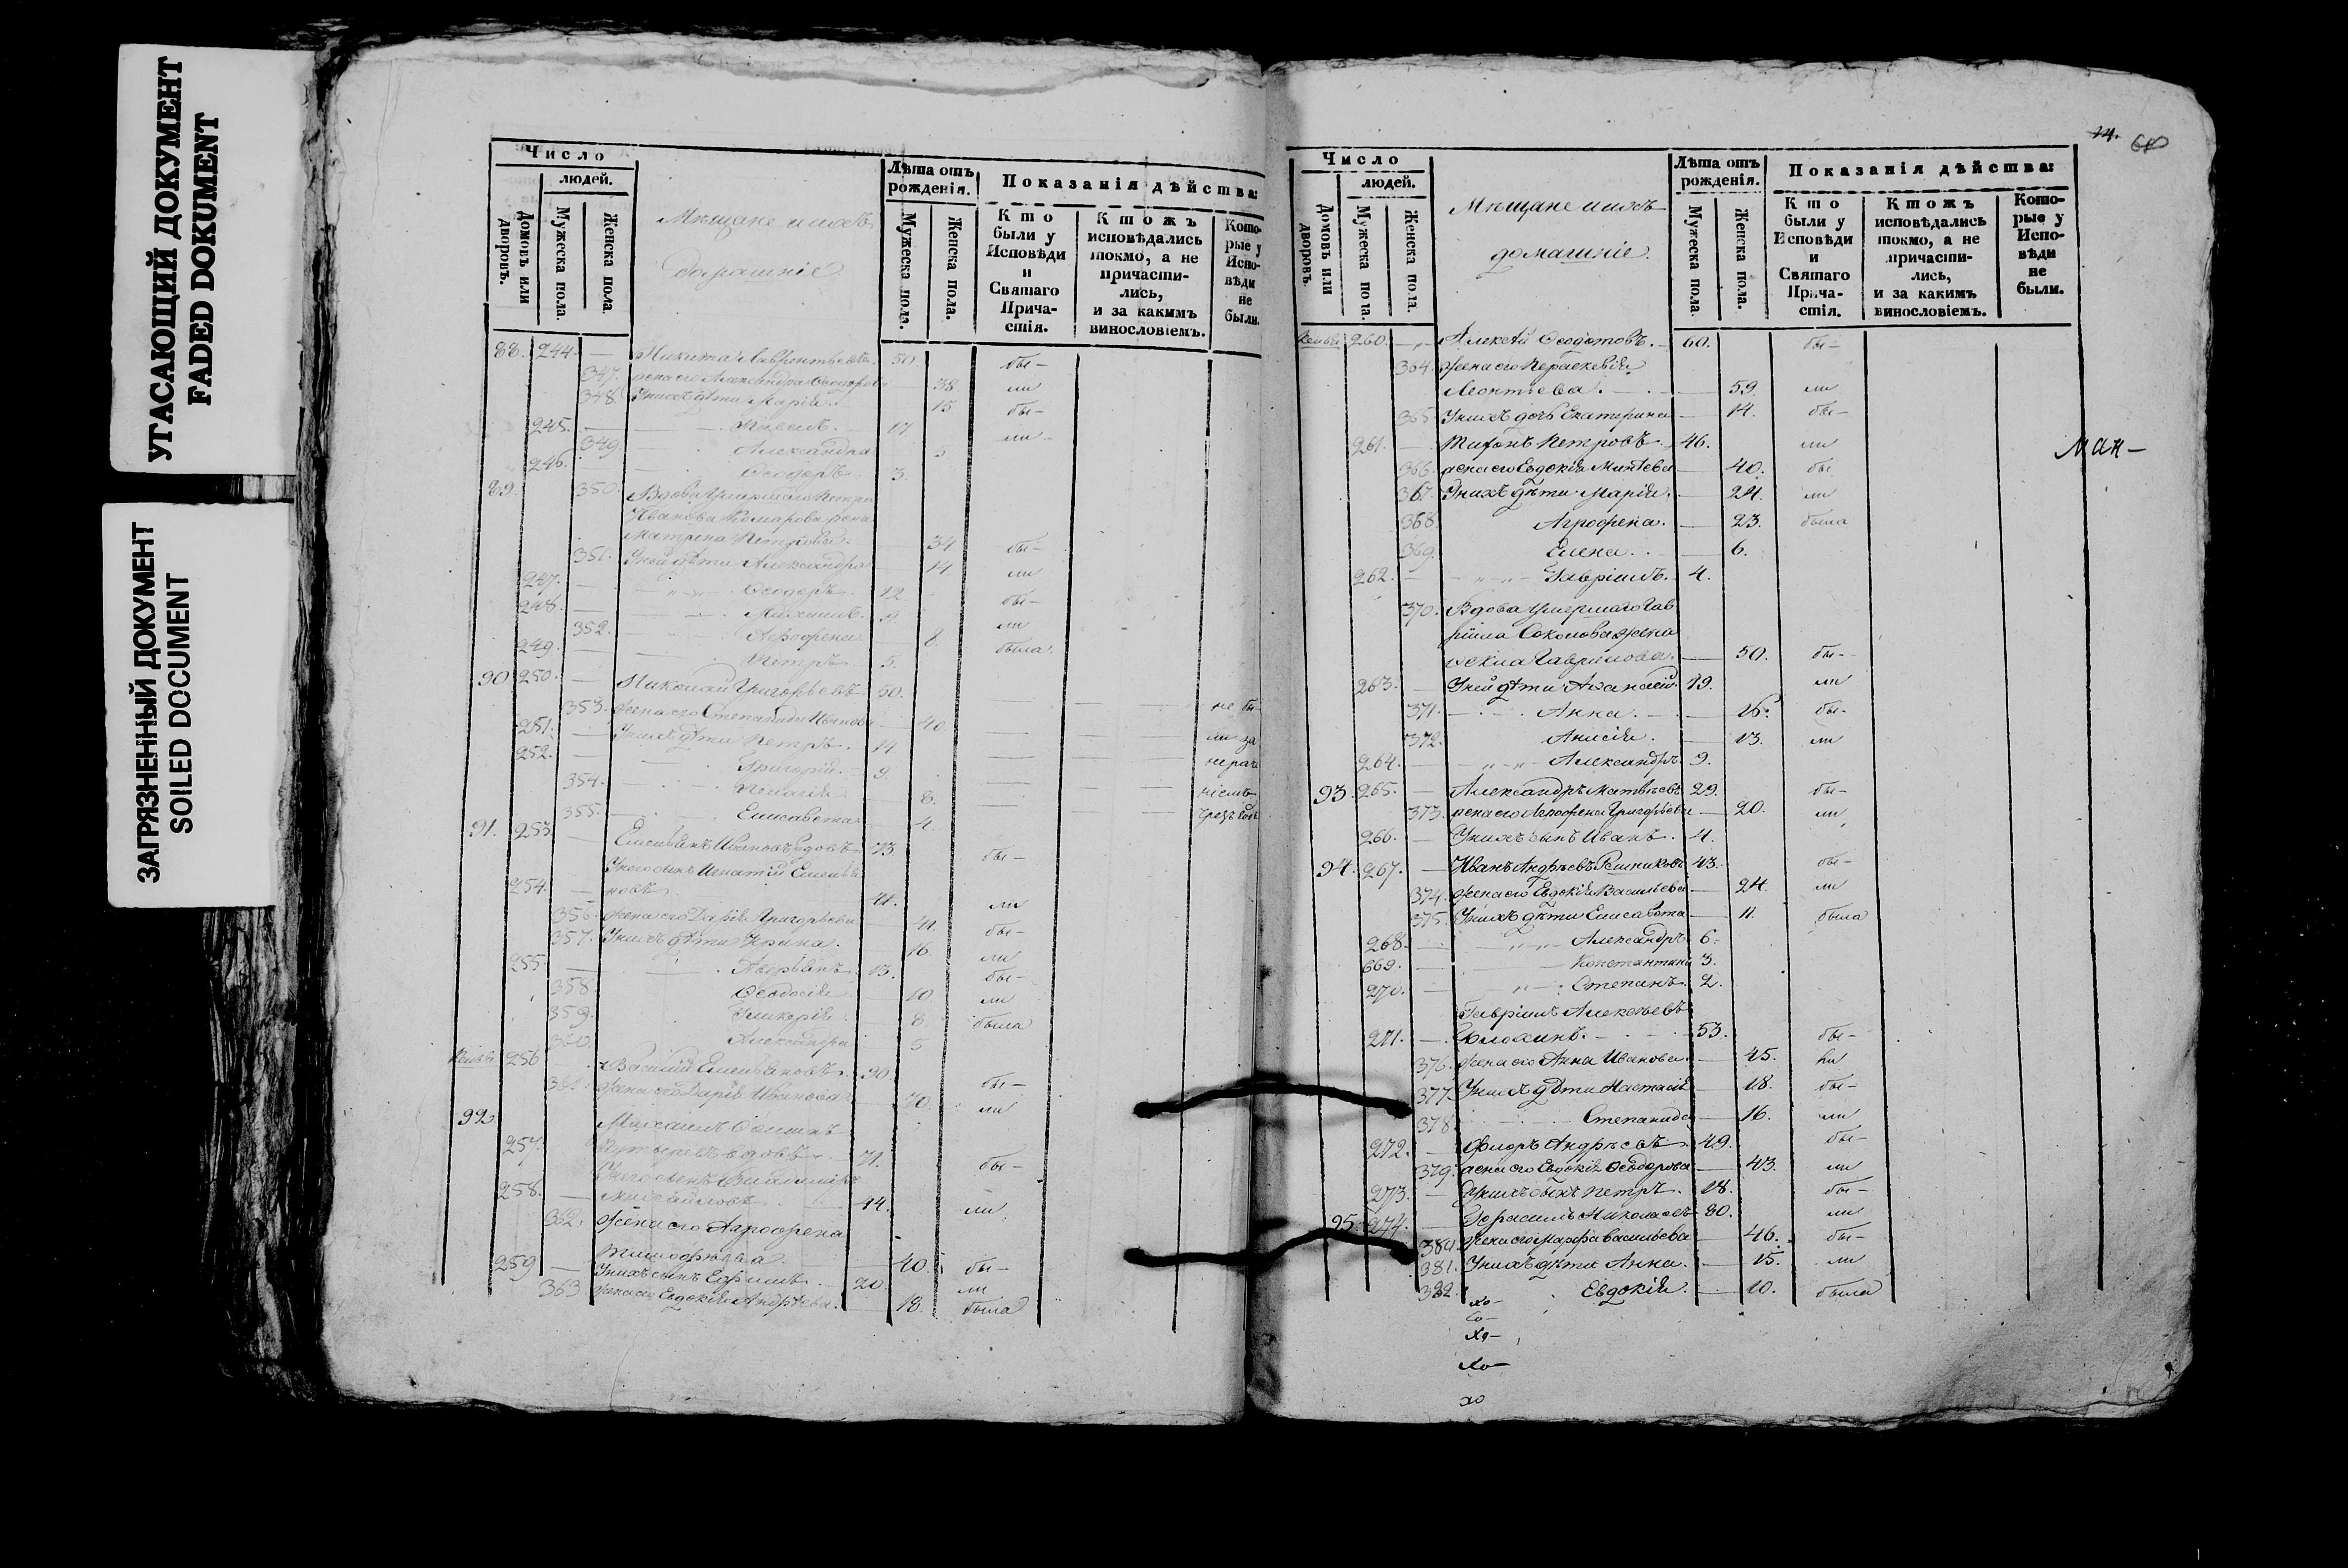 УГАСАЮЩИЙ ДОКУМЕНТ
FADED DOKUMENT
ЗАГРЯЗНЕННЫЙ ДОКУМЕНТ
SOILED DOCUMENT
Число
людей.
Домовъ или дворовъ.
Мужеска пола.
Женска пола.
Мѣщане и ихъ
Лѣта отъ рожденія.
Мужеска пола.
Женска пола.
Показанія дѣйства:
Кто были у Исповѣди и Святаго Прича-стія.
Ктожъ исповѣдались токмо, а не причасти-лись, и за какимъ винословіемъ.
Кото-рые у Испо-вѣди не были.
88. 244. — Никита Лаврентьевъ 50. бы-
347. жена его Александра Ѳеодорова 38. ли
348. У нихъ дѣти Марія. 15 бы-
245. Павелъ. 17 ли
349. Александра 5
246. Ѳеодоръ 3.
89. 350. Вдова умершаго Петра
Иванова Комарова жена
Матрена Петрова. 34 бы-
351. У ней дѣти Александра 14 ли
247. — Ѳеодоръ 12 бы-
248. — Михаилъ. 9 ли
352. Агрофена 8. была
249. — Петръ 5.
90 250. — Николай Григорьевъ 50.
353. жена его Степанида Иванова 40. не бы-
251. — У нихъ дѣти Петръ. 14 ли за
252. — Григорій. 9. нерач
354. Пелагія 8. ніемъ
355. Елисавета 4.
91. 253. Емельянъ Ивановъ вдовъ 73. бы-
У него сынъ Игнатій Емелья
254. — новъ 41. ли
356. жена его Дарія Григорьева 41. бы-
357. У нихъ дѣти Ирина. 16. ли
255. Аверьянъ 13. бы-
358 Ѳеодосія 10 ли
359. Гликерія 8. была
360 Александра 5
256 Василій Емельяновъ. 90. бы-
361. жена его Дарія Иванова 70. ли
92. Михаилъ
257. вдовъ 71. бы-
258. — Михайловъ 44. ли
362. жена его Агрофена
40. бы-
259 — У нихъ сынъ Ефимъ. 20. ли
363 жена его Евдокія Андрѣева. 18. была
14. 68
Число
людей.
Домовъ или дворовъ.
Мужеска пола.
Женска пола.
Мѣщане и ихъ
домашніе.
Лѣта отъ рожденія.
Мужеска пола.
Женска пола.
Показанія дѣйства:
Кто были у Исповѣди и Святаго Прича-стія.
Ктожъ исповѣдались токмо, а не причасти-лись, и за какимъ винословіемъ.
Кото-рые у Испо-вѣди не были.
260. Алексѣй Ѳеодотовъ. 60. бы-
364. жена его Параскевія
Леонтьева. 59. ли
365 У нихъ дочь Екатерина 14. бы-
261. Тихонъ Петровъ. 46. ли
366. жена его Евдокія Матѣева 40. бы
367. У нихъ дѣти Марія. 24. ли
368 Агрофена. 23. была
369. Елена. 6.
262. Гавріилъ. 4.
370. Вдова умершаго Гав
ріила Соколова жена
Ѳекла Гаврилова. 50. бы-
263. У ней дѣти Аѳанасій. 19. ли
371. Анна. 16. бы-
372. Анисія. 13. ли
264. Александръ 9.
93. 265. Александръ Матвѣевъ 29. бы-
373. жена его Агрофена Григорьева 20. ли
266. У нихъ сынъ Иванъ. 4.
94. 267. Иванъ Андреевъ Решниковъ 43. бы-
374. жена его Евдокія Васильева 24. ли
375. У нихъ дѣти Елисавета 11. была
268. Александръ 6.
669. Константинъ 3.
270. Степанъ 2.
Гавріилъ Алексѣевъ
271. 53. бы-
376. жена его Анна Иванова. 45. ли
377. У нихъ дѣти Настасія 18. бы-
378 Степанида 16. ли
272. Флоръ Андреевъ 49. бы-
379. жена его Евдокія Ѳеодорова 43. ли
273. У нихъ сынъ Петръ. 18. бы-
95. 274. Герасимъ Николаевъ 80. ли
380 жена его Марфа Васильева 46. бы-
381. У нихъ дѣти Анна. 15. ли
382. Евдокія. 10. была
ман-
хо-
со-
хо-
хо-
хо